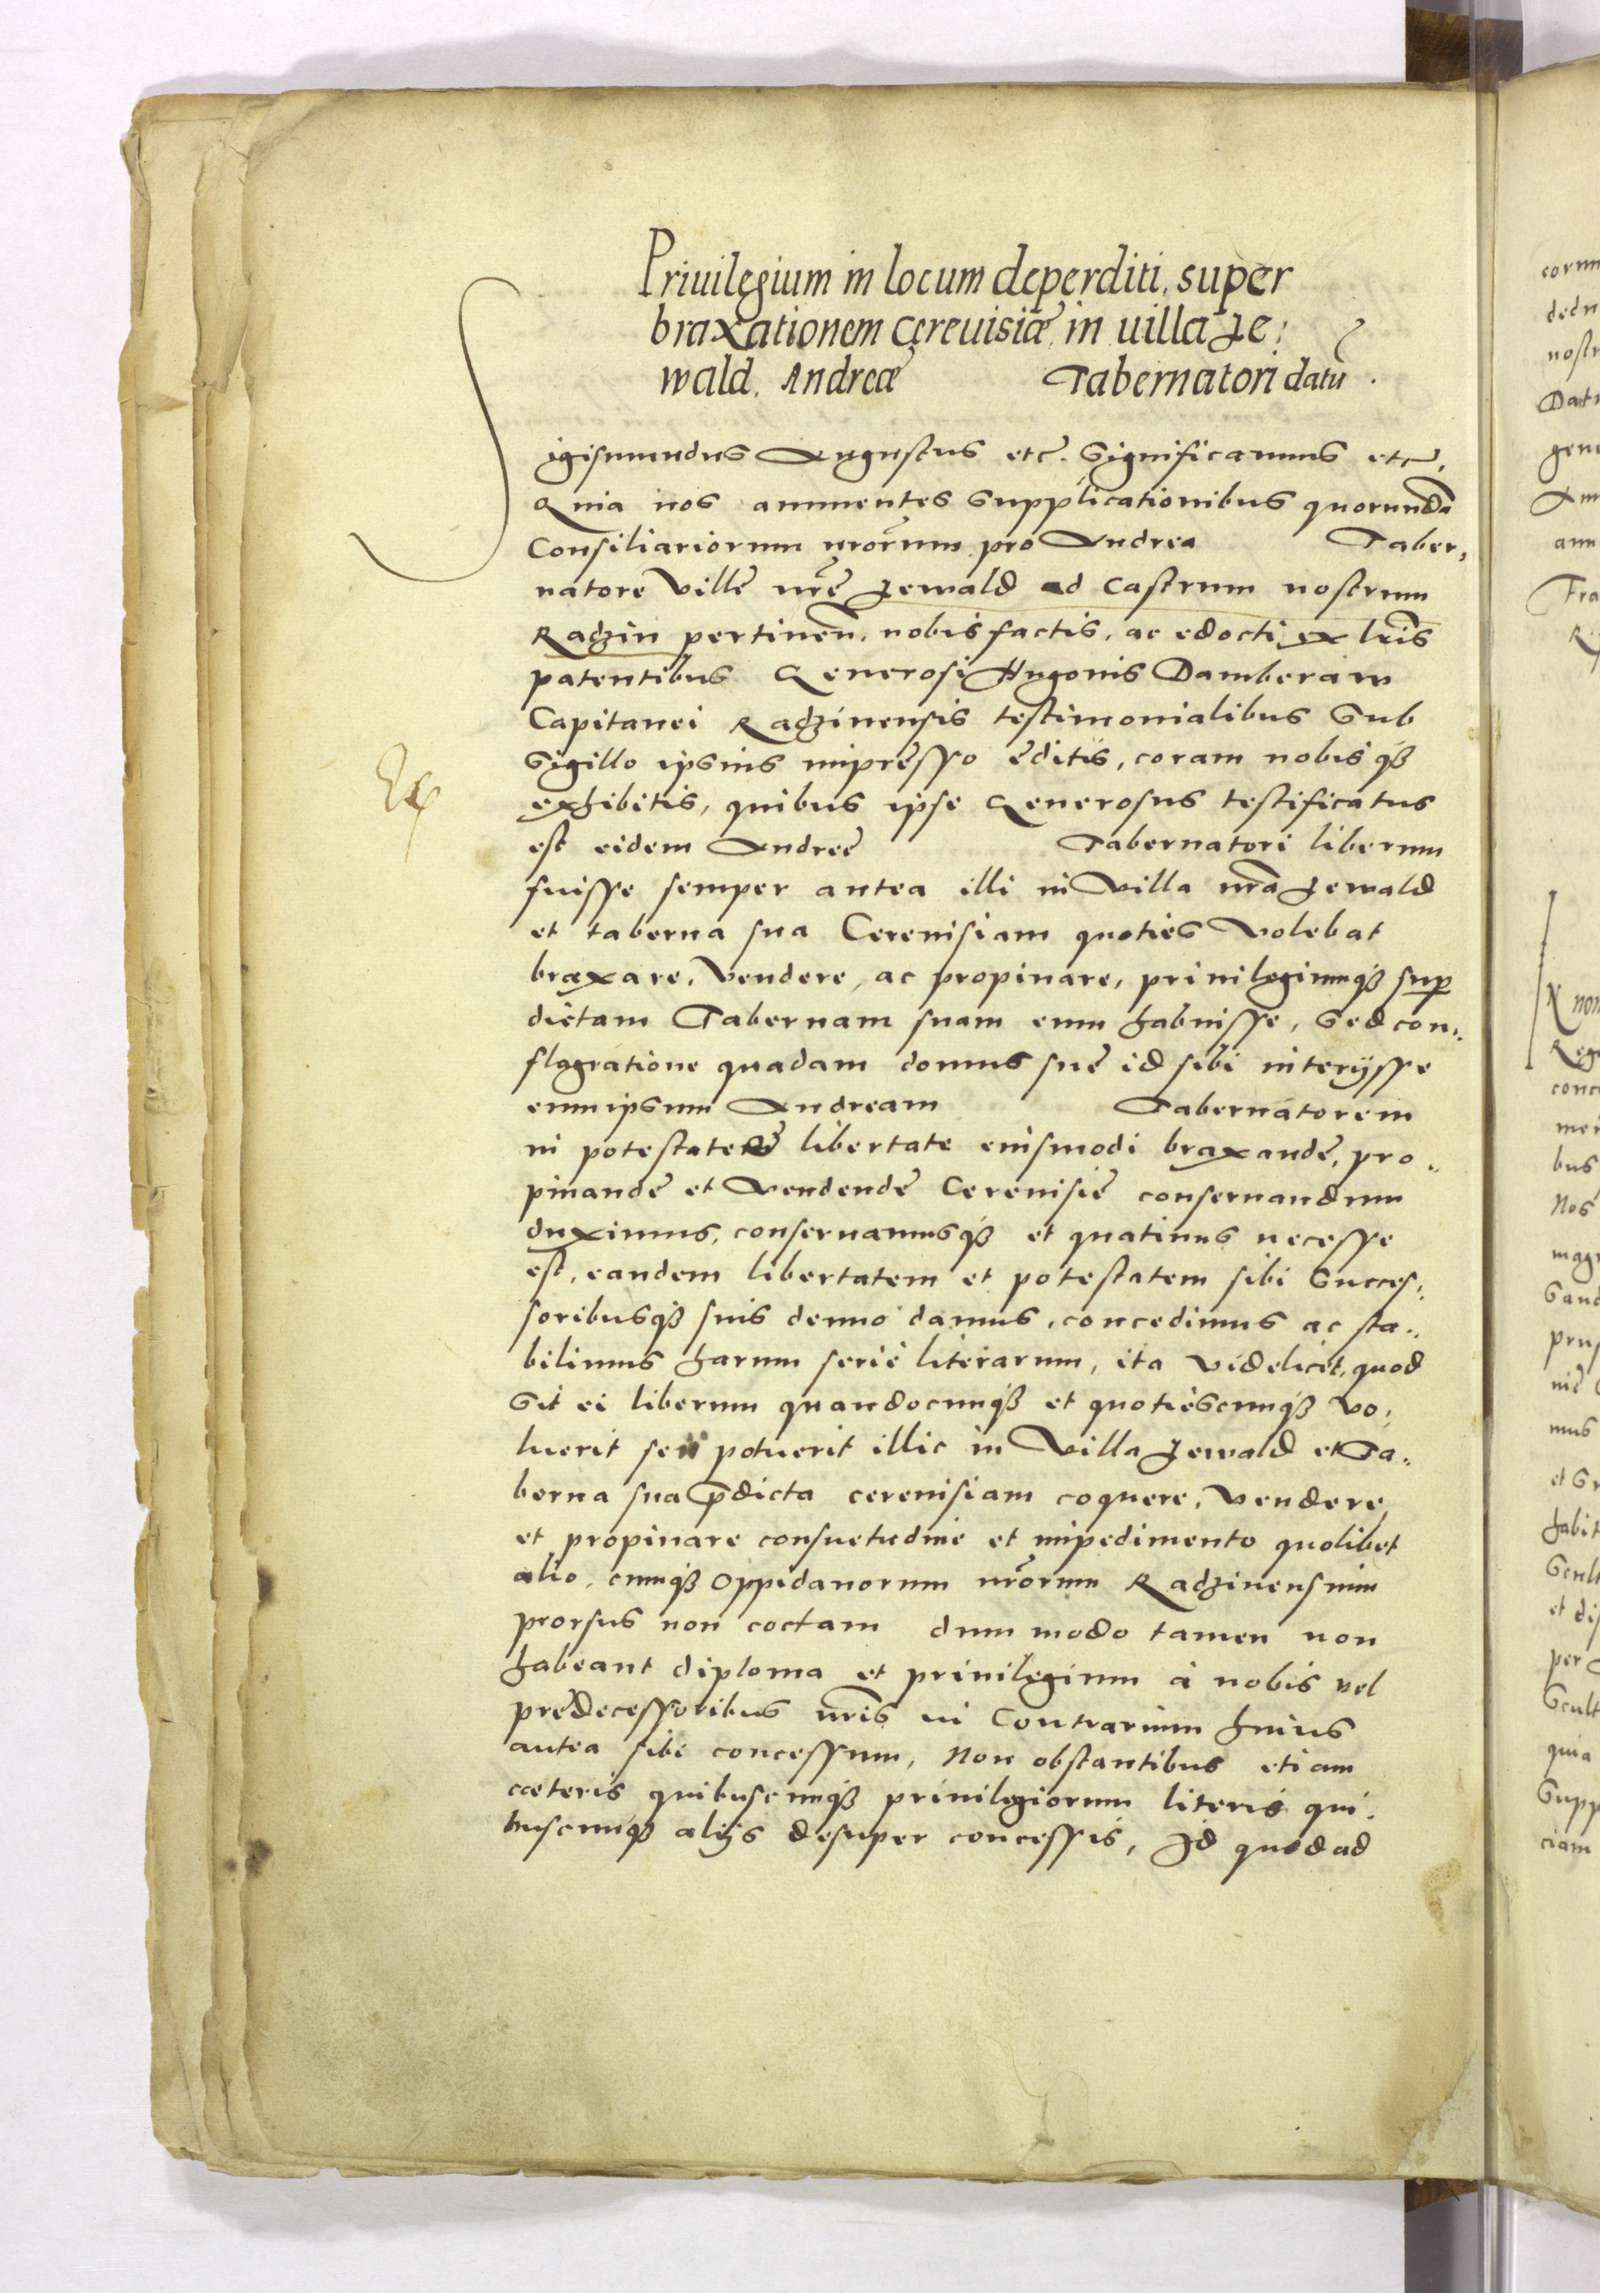 Priuilegium in locum deperditi, super
braxationem cereuisiæ, in uilla Je:
wald, Andreæ Tabernatori datũ.
Sigismundus Augustus etc. Significamus etc,
Quia nos annuentes supplicationibus quorundã
Consiliariorum nrõrum pro Andrea Taber,
natore Villę nrę̃ Jewald ad Castrum nostrum
Radzin pertinen̄. nobis factis, ac edocti ex lr̃is
patentibus Generosi Hugonis Damberaw
Capitanei Radzinensis testimonialibus sub
sigillo ipsius impresso editis, coram nobisq3
exhibitis, quibus ipse Generosus testificatus
est eidem Andreę Tabernatori liberum
fuisse semper antea illi in Villa nrã Jewald
et taberna sua Cereuisiam quoties Volebat
braxare, Vendere, ac propinare, priuilegiumq3 sup
dictam Tabernam suam eum habuisse, sed con,
flagratione quadam domus suę id sibi interijsse
eum ipsum Andream Tabernatorem
in potestate libertate eiusmodi braxandę, pro,
pinandę et Vendendę Cereuisię conseruandum
duximus, conseruamusq3 et quatinus necesse
est, eandem libertatem et potestatem sibi Succes,
soribusq3 suis denuo damus, concedimus ac sta,
bilimus harum serie literarum, ita Videlicet, quod
Sit ei liberum quandocunq3 et quotiescunq3 Vo,
luerit seu potuerit illic in Villa Jewald et Ta,
berna sua p̃dicta cereuisiam coquere, Vendere,
et propinare consuetudine et impedimento quolibet
alio, cumq3 Oppidanorum nrõrum Radzinensium
prorsus non coctam dum modo tamen non
habeant diploma et priuilegium à nobis vel
prędecessoribus nr̃is in Contrarium huius
antea sibi concessum, Non obstantibus etiam
cæteris quibuscunq3 priuilegiorum literis qui,
buscunq3 alijs desuper concessis, Id quod ad